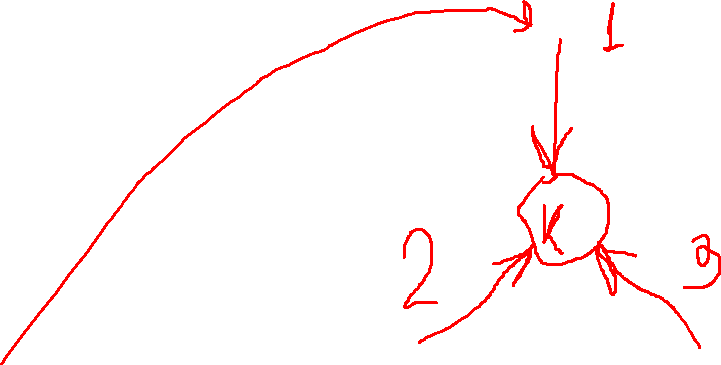 1
K
2
3